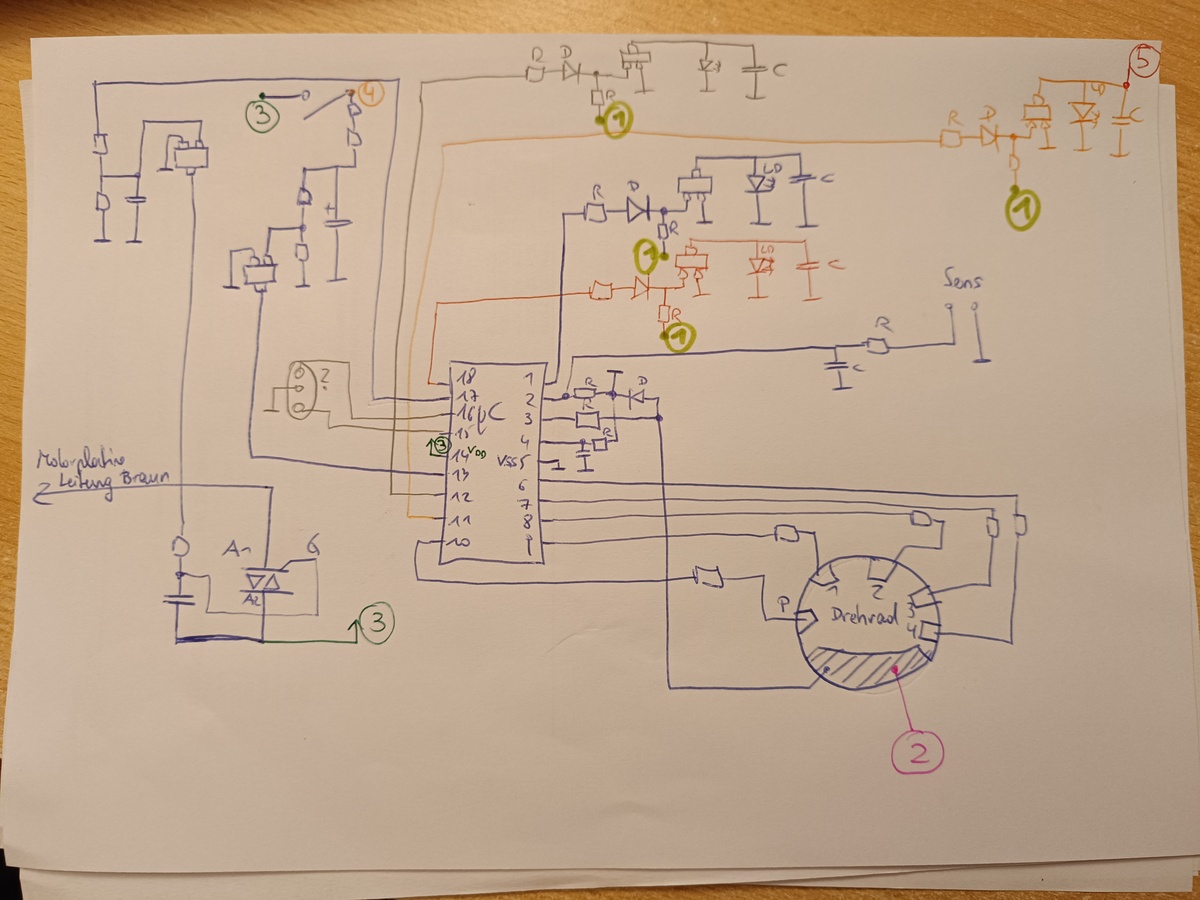 R D C
R
1
5
3
4
R D LD C
1
R D LD C
R
1
LD C
R
1
Sens
R
C
?
18 1
17 2 R D
16 µC 3 R
15 4 R
3
14 VDD VSS 5
13 6
12 7
11 8
10 9
Motorplatine
Leitung Braun
A1 G
A2
3
P 1 2 3 4
Drehrad
2